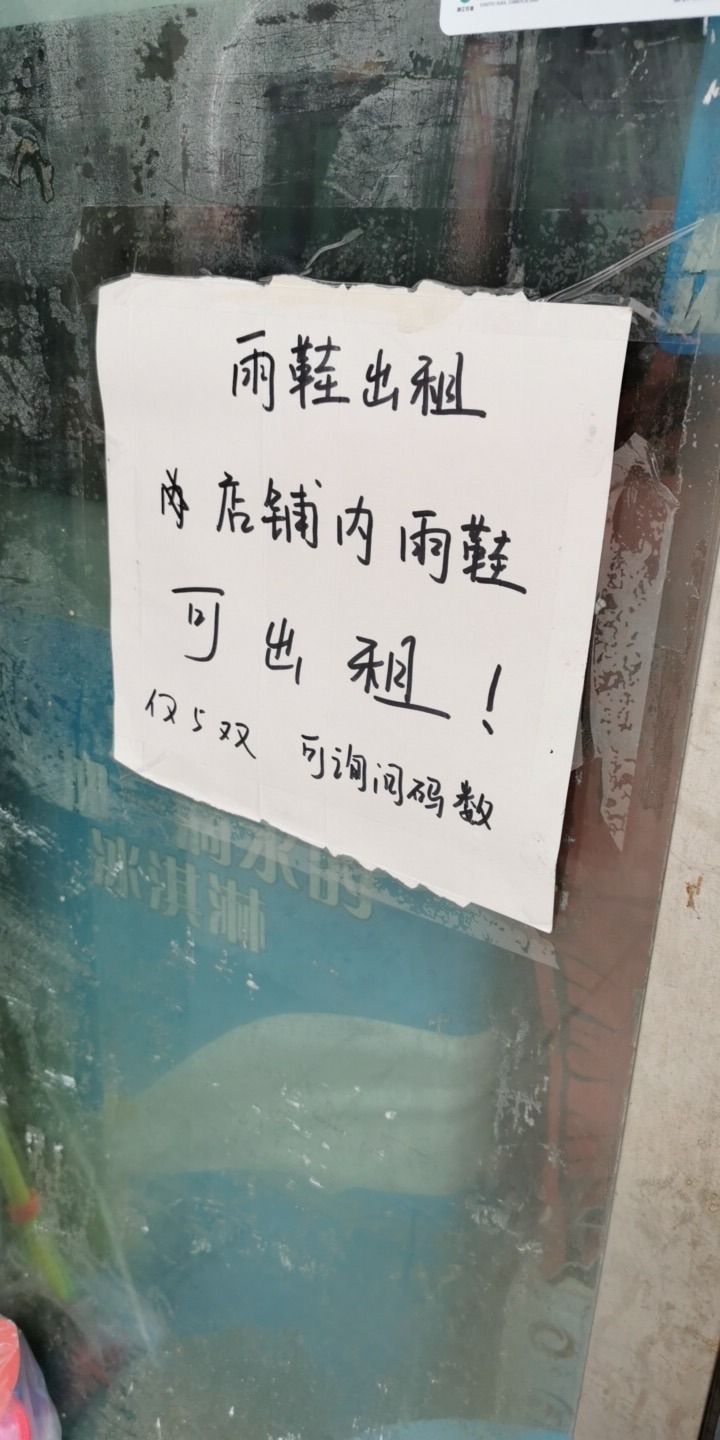 雨鞋出租
店铺内雨鞋
可出租！
仅5双 可询问码数
冰淇淋